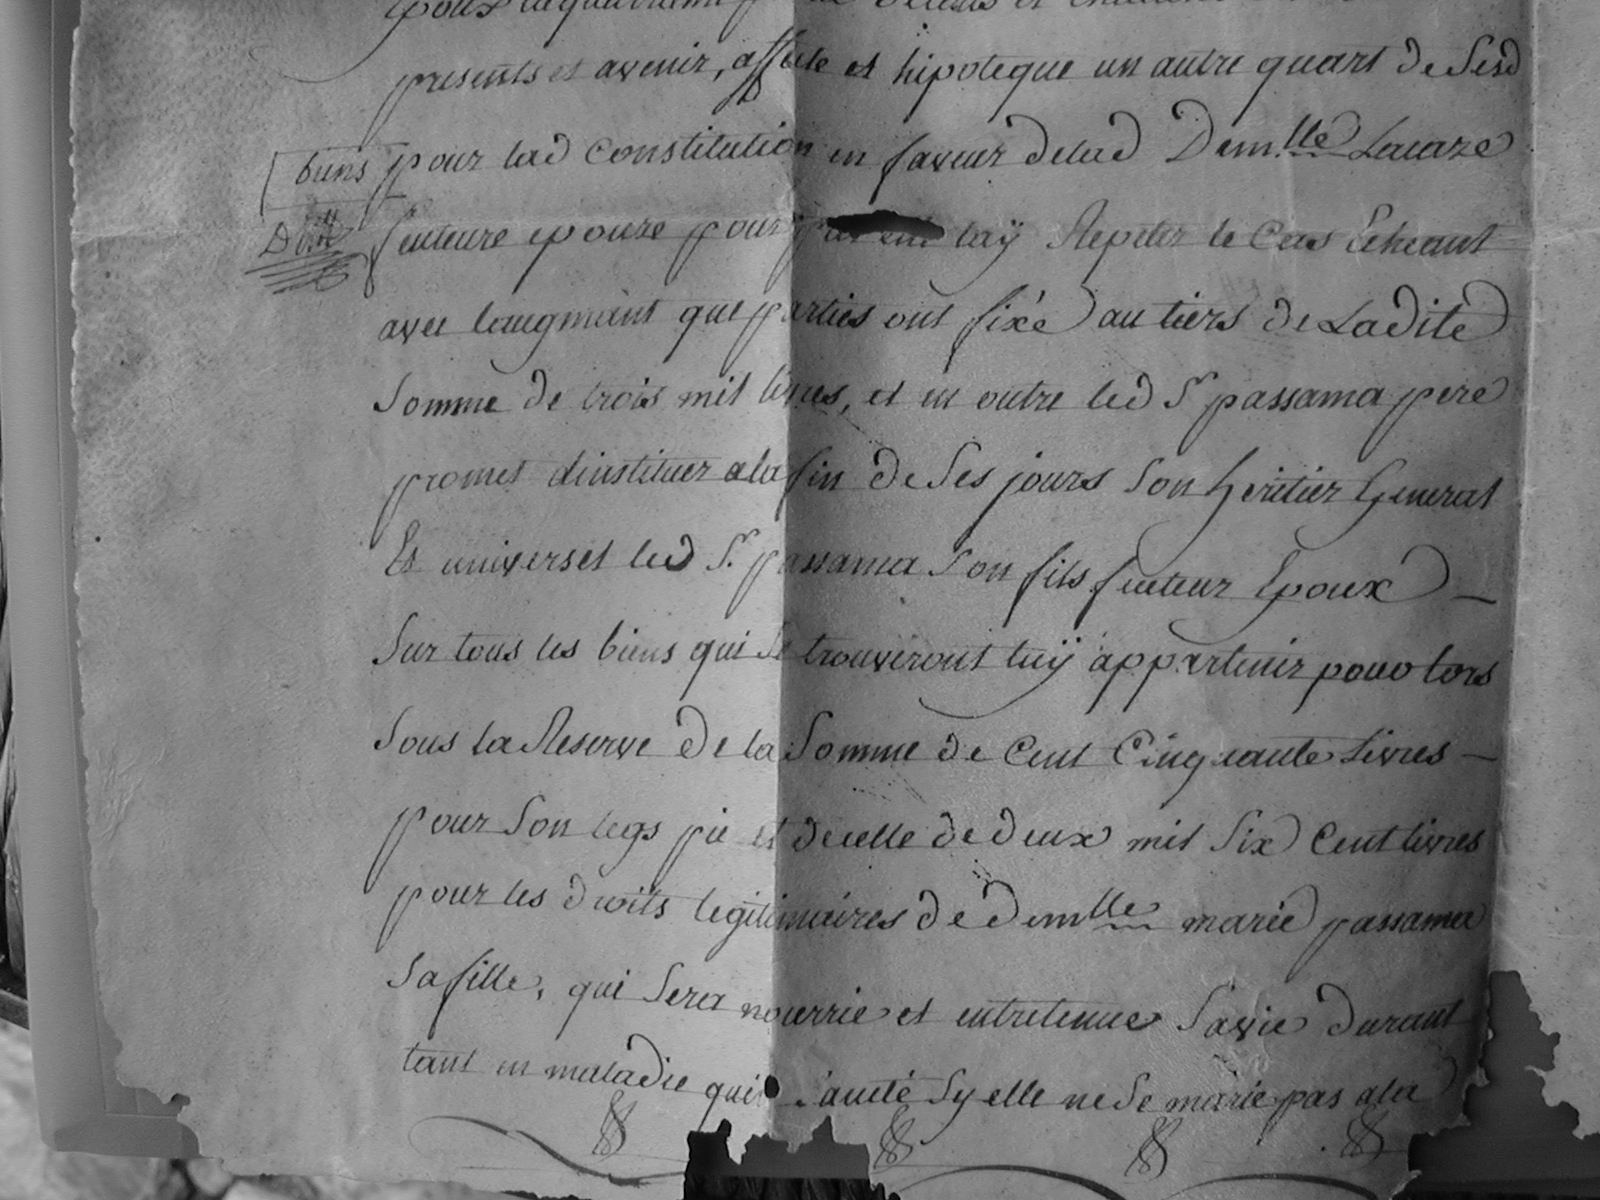 presents et avenir, affecte et hipoteque un autre quart de Sesd
biens pour lad constitution en faveur delad Dem.lle Lacaze
future epouze pour luÿ Repeter le Cas Echeant
avec laugmant que parties ont fixé au tiers de Ladite
Somme de trois mil livres, et en outre led Sr passama pere
promet dinstituer ala fin de Ses jours Son heritier General
Et universel led Sr. passama Son fils futeur Epoux
Sur tous les biens qui Se trouveront luÿ appartenir pour lors
Sous la Reserve de la Somme de Cent Cinquante Livres
pour Son legs pie et de celle de deux mil Six Cent livres
pour les droits legitimaires de demlle marie passama
Sa fille, qui Sera nourrie et entretenue Sa vie durant
tant en maladie que Santé Sy elle ne Se marie pas ala